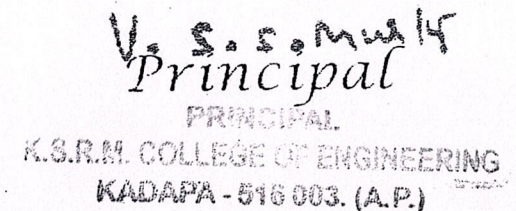 V. S. S. Murty
Principal
PRINCIPAL
K.S.R.M. COLLEGE OF ENGINEERING
KADAPA - 516 003. (A.P.)